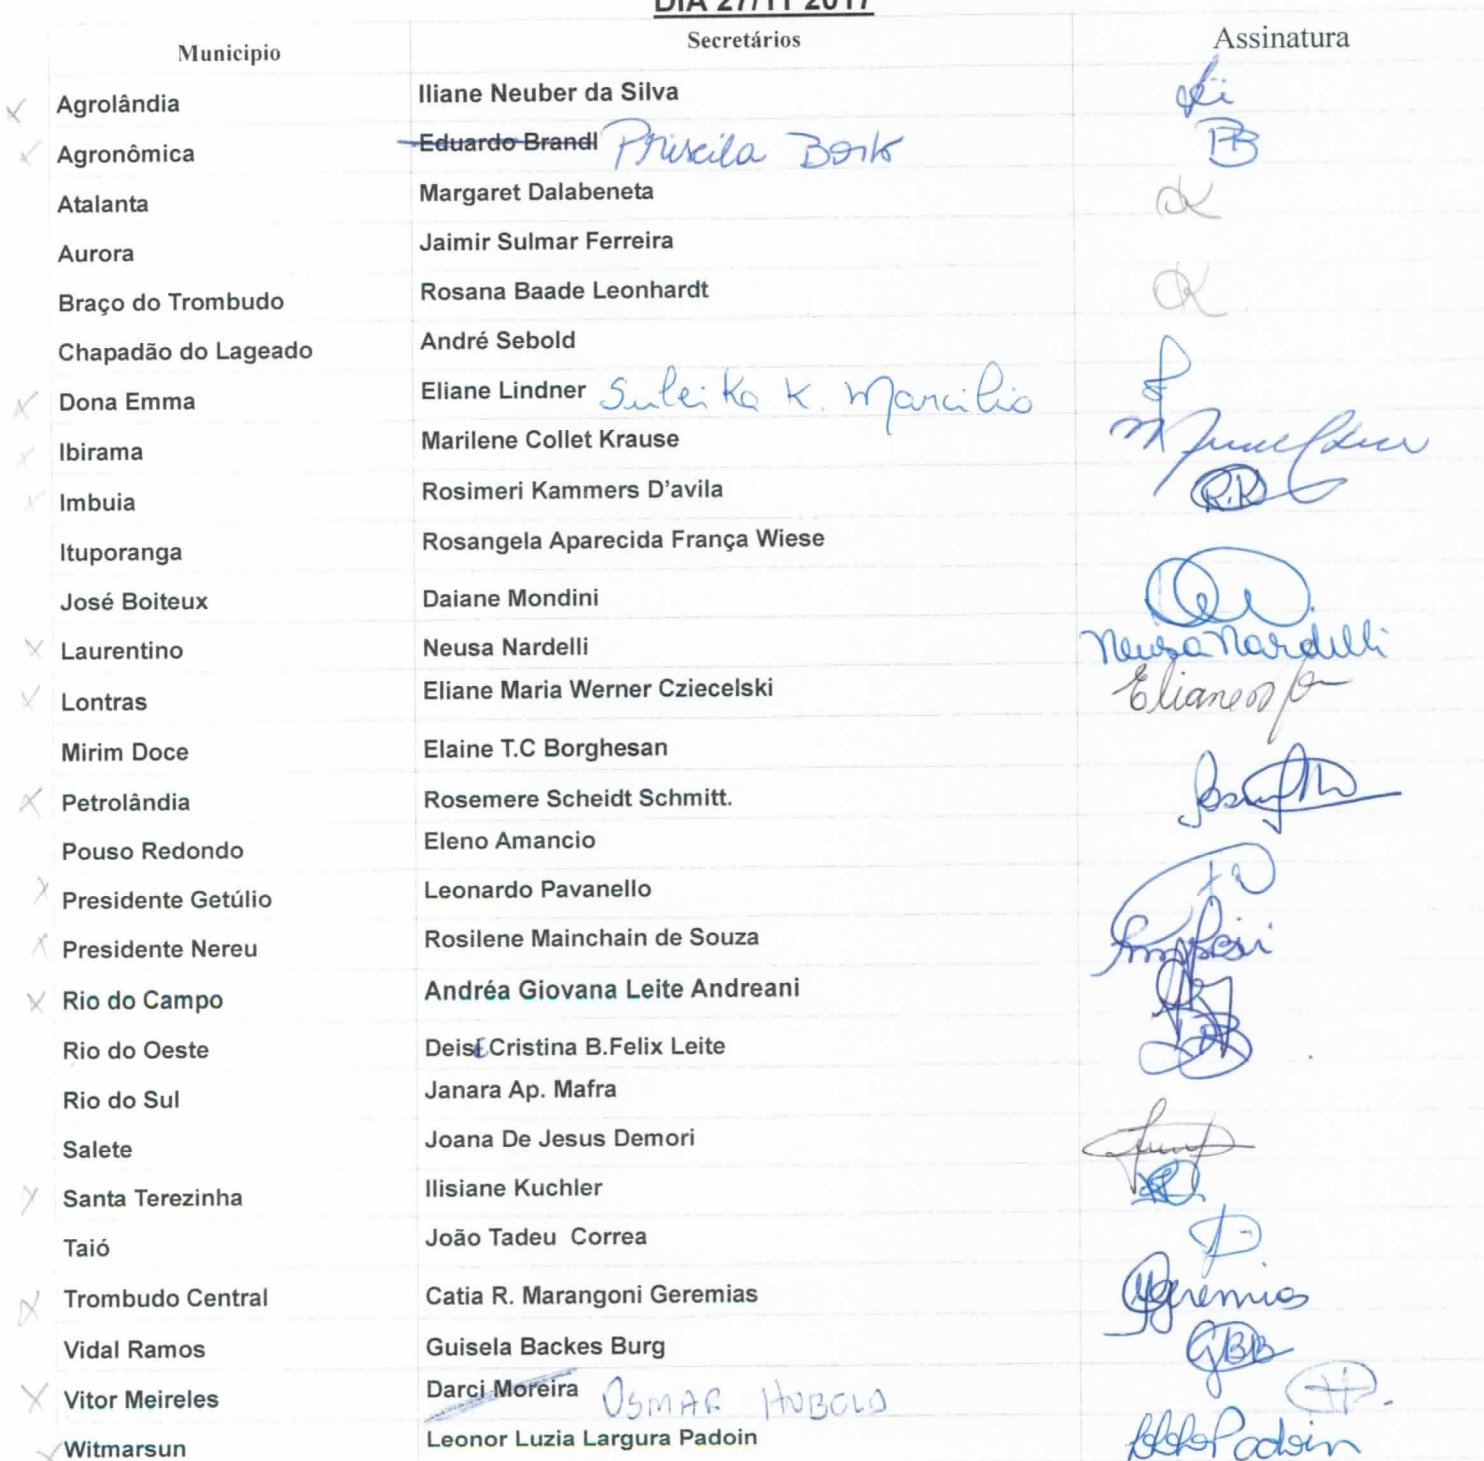 DIA 27/11 2017
Municipio Secretários Assinatura
Agrolândia Iliane Neuber da Silva
Agronômica Eduardo Brandl Priscila
Atalanta Margaret Dalabeneta
Aurora Jaimir Sulmar Ferreira
Braço do Trombudo Rosana Baade Leonhardt
Chapadão do Lageado André Sebold
Dona Emma Eliane Lindner Suleika K. Marcilio
Ibirama Marilene Collet Krause
Imbuia Rosimeri Kammers D'avila R.K
Ituporanga Rosangela Aparecida França Wiese
José Boiteux Daiane Mondini
Laurentino Neusa Nardelli Neusa Nardelli
Lontras Eliane Maria Werner Cziecelski
Mirim Doce Elaine T.C Borghesan
Petrolândia Rosemere Scheidt Schmitt.
Pouso Redondo Eleno Amancio
Presidente Getúlio Leonardo Pavanello
Presidente Nereu Rosilene Mainchain de Souza
Rio do Campo Andréa Giovana Leite Andreani
Rio do Oeste Deise Cristina B.Felix Leite
Rio do Sul Janara Ap. Mafra
Salete Joana De Jesus Demori
Santa Terezinha Ilisiane Kuchler
Taió João Tadeu Correa
Trombudo Central Catia R. Marangoni Geremias Geremias
Vidal Ramos Guisela Backes Burg GBB
Vitor Meireles Darci Moreira OSMAR
Witmarsun Leonor Luzia Largura Padoin Padoin